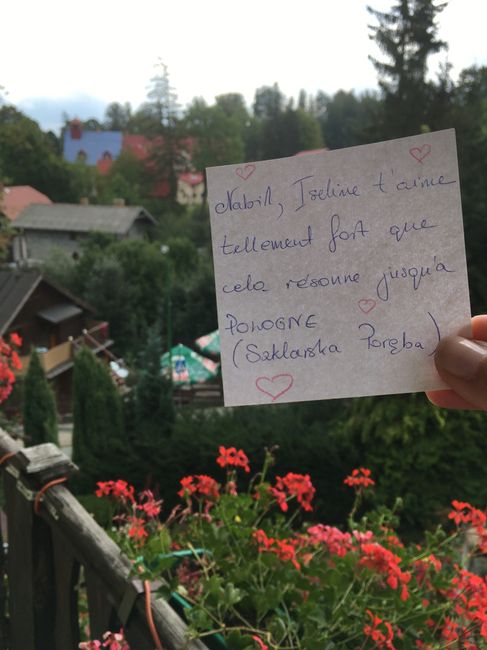 Nabil, Iseline t'aime
tellement fort que
cela résonne jusqu'à
POLOGNE
(Szklarska Poręba)